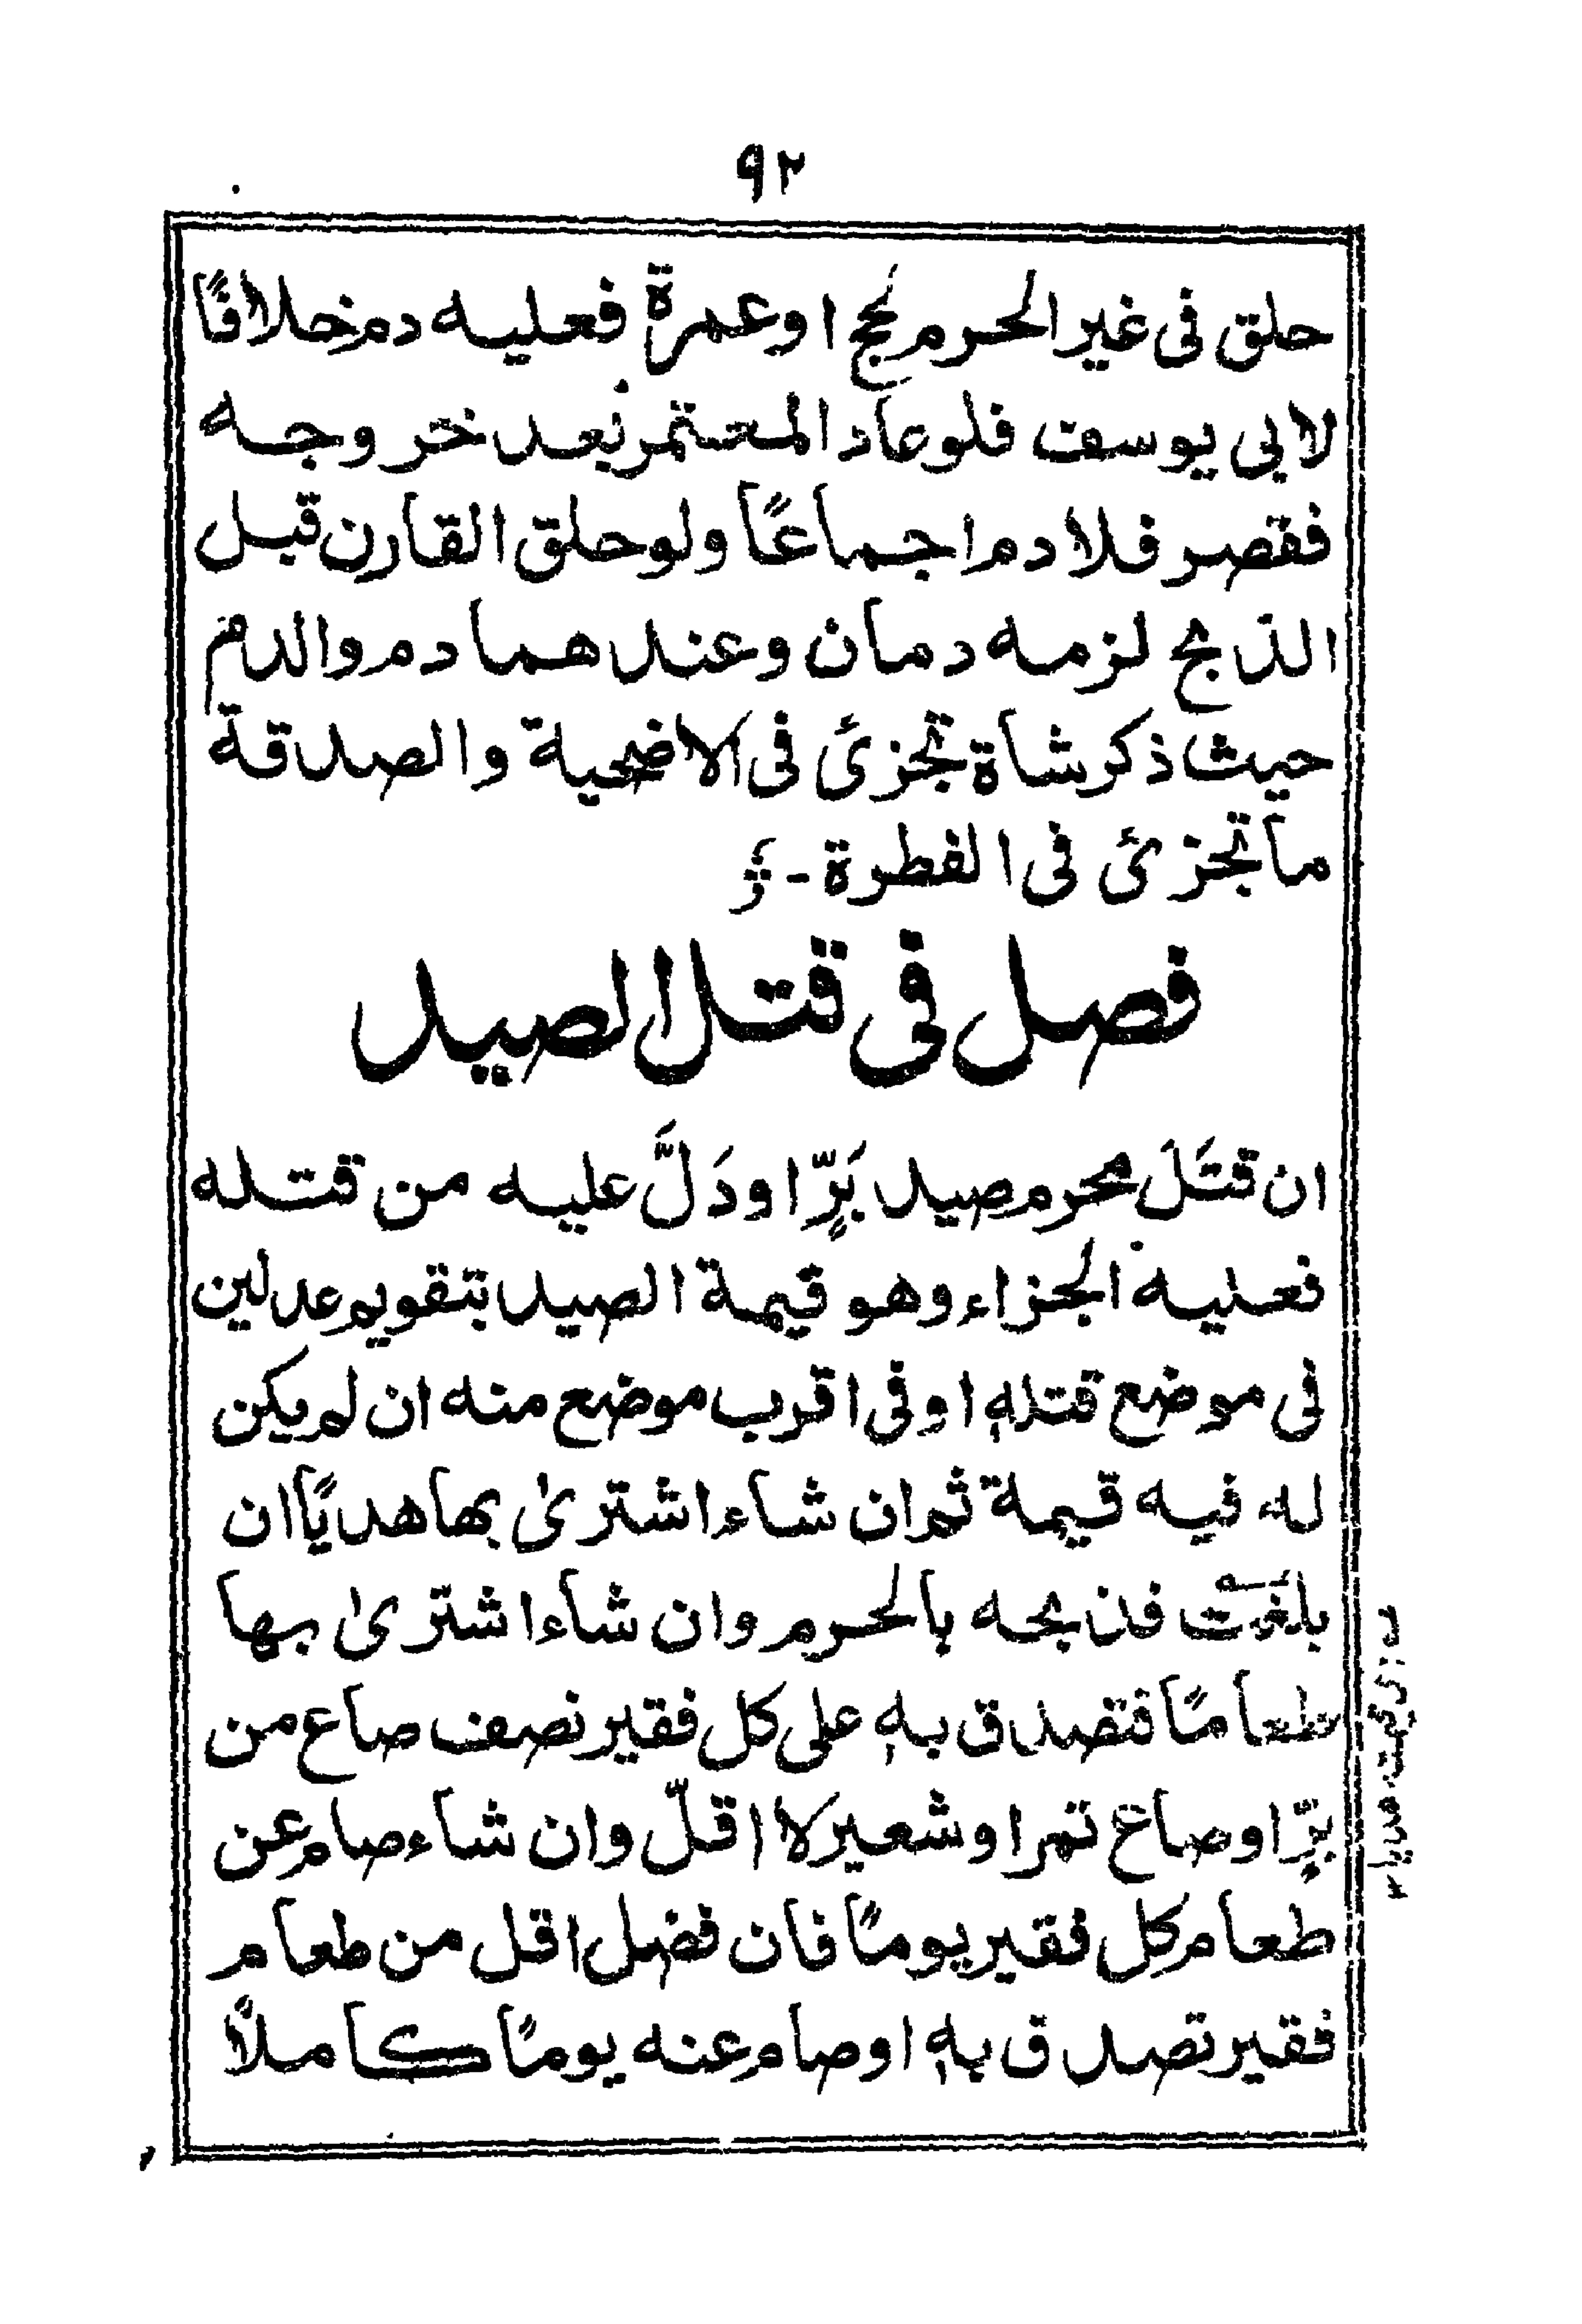 ٩٢
حلق فى غير الحرم لحج او عمرة فعليه دم خلافًا
لابي يوسف فلو عاد المعتمر بعد خروجه
فقصر فلا دم اجماعًا ولو حلق القارن قبل
الذبح لزمه دمان وعندهما دم والدم
حيث ذكر شاة تجزئ فى الاضحية والصدقة
ما تجزئ فى الفطرة -
فصل فى قتل الصيد
ان قتَلَ محرم صيد بَرٍّ او دَلَّ عليه من قتله
فعليه الجزاء وهو قيمة الصيد بتقويم عدلين
فى موضع قتله او فى اقرب موضع منه ان لم يكن
له فيه قيمة ثم ان شاء اشترىٰ بها هديًا ان
بلغت فذبحه بالحرم وان شاء اشترىٰ بها
طعامًا فتصدق به على كل فقير نصف صاع من
برٍّ او صاع تمر او شعير لا اقلّ وان شاء صام عن
طعام كل فقير يومًا فان فضل اقل من طعام
فقير تصدق به او صام عنه يومًا كاملاً